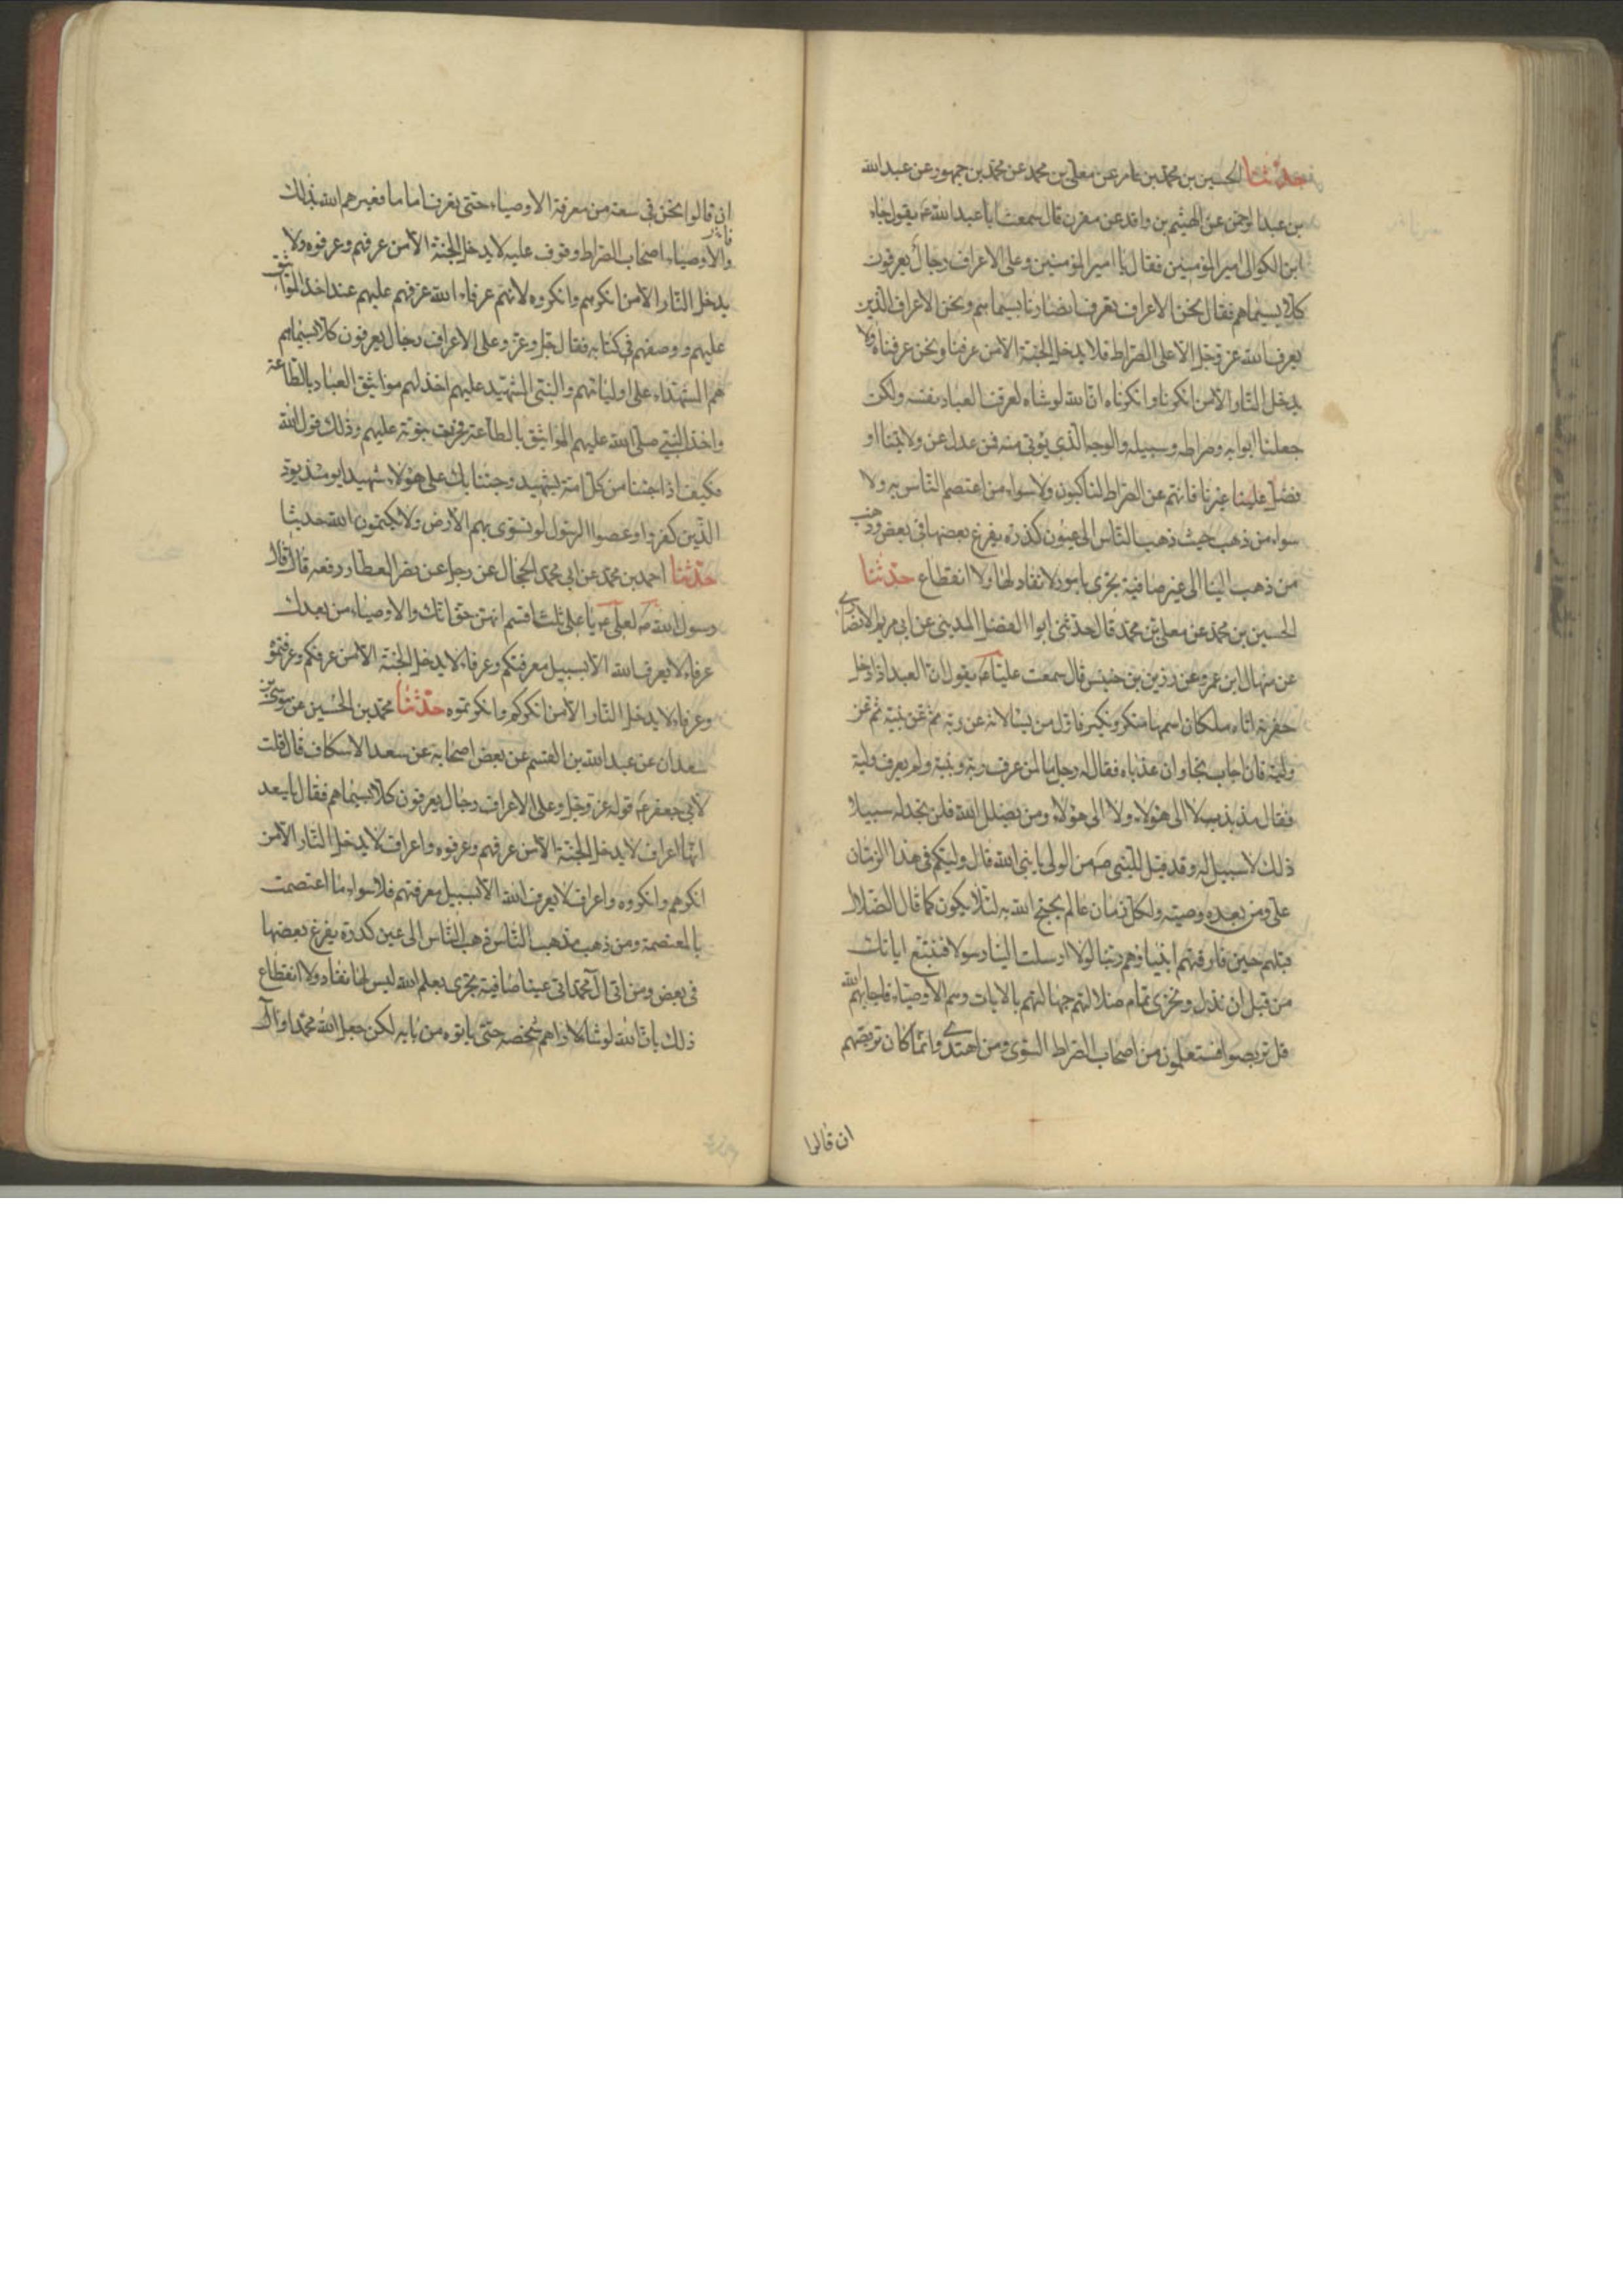 حدثنا الحسين بن محمد بن عامر عن معلى بن محمد عن محمد بن جمهور عن عبد الله
بن عبد الرحمن عن الهيثم بن واقد عن مقرن قال سمعت ابا عبد الله ع يقول جاء
ابن الكوا الى امير المؤمنين فقال يا امير المؤمنين وعلى الاعراف رجال يعرفون
كلا بسيماهم فقال نحن الاعراف نعرف انصارنا بسيماهم ونحن الاعراف الذين
يعرف الله عز وجل الا على الصراط فلا يدخل الجنة الا من عرفنا ونحن عرفناه ولا
يدخل النار الا من انكرنا وانكرناه ان الله لو شاء لعرف العباد نفسه ولكن
جعلنا ابوابه وصراطه وسبيله والوجه الذي يؤتى منه فمن عدل عن ولايتنا او
فضل علينا غيرنا فانهم عن الصراط لناكبون ولا سواء من اعتصم الناس به ولا
سواء من ذهب حيث ذهب الناس الى عيون كدرة يفرغ بعضها في بعض وذهب
من ذهب الينا الى عين صافية تجري بامور لا نفاد لها ولا انقطاع حدثنا
الحسين بن محمد عن معلى بن محمد قال حدثني ابوا الفضل المديني عن ابي مريم الانصاري
عن منهال ابن عمرو عن رزين بن حبيش قال سمعت عليا ع يقول ان العبد اذا دخل
حفرته اتاه ملكان اسمهما منكر ونكير فاول من يسالانه عن ربه ثم عن نبيه ثم عن
وليه فان اجاب نجا وان عذباه فقال له رجل ما لمن عرف ربه ونبيه ولم يعرف وليه
فقال مذبذب لا الى هؤلاء ولا الى هؤلاء ومن يضلل الله فلن تجد له سبيلا
ذلك لا سبيل له وقد قيل للنبي ص من الولي يا نبي الله قال وليكم في هذا الزمان
علي ومن بعده وصيه ولكل زمان عالم يحتج الله به لئلا يكون كما قال الضلال
قبلهم حين فارقتهم انبياؤهم ربنا لولا ارسلت الينا رسولا فنتبع اياتك
من قبل ان نذل ونخزى تمام ضلالتهم جهالتهم بالايات وهم الاوصياء فاجابهم الله
قل تربصوا فستعلمون من اصحاب الصراط السوي ومن اهتدى وانما كان تربصهم
ان قالوا
ان قالوا نحن في سعة من معرفة الاوصياء حتى نعرف اماما فعيرهم الله بذلك
والاوصياء اصحاب الصراط وقوف عليه لا يدخل الجنة الا من عرفهم وعرفوه ولا
يدخل النار الا من انكرهم وانكروه لانهم عرفاء الله عرفهم عليهم عند اخذ المواثيق
عليهم ووصفهم في كتابه فقال جل وعز وعلى الاعراف رجال يعرفون كلا بسيماهم
هم الشهداء على اوليائهم والنبي الشهيد عليهم اخذ لهم مواثيق العباد بالطاعة
واخذ النبي صلى الله عليهم المواثيق بالطاعة فجرت نبوته عليهم وذلك قول الله
فكيف اذا جئنا من كل امة بشهيد وجئنا بك على هؤلاء شهيدا يومئذ يود
الذين كفروا وعصوا الرسول لو تسوى بهم الارض ولا يكتمون الله حديثا
حدثنا احمد بن محمد عن ابي محمد الحجال عن رجل عن نضر العطار رفعه قال قال
رسول الله ص لعلي ع يا علي ثلث اقسم انهن حق انك والاوصياء من بعدك
عرفاء لا يعرف الله الا بسبيل معرفتكم وعرفاء لا يدخل الجنة الا من عرفكم وعرفتموه
وعرفاء لا يدخل النار الا من انكركم وانكرتموه حدثنا محمد بن الحسين عن موسى بن
سعدان عن عبد الله بن القسم عن بعض اصحابه عن سعد الاسكاف قال قلت
لابي جعفر ع قوله عز وجل وعلى الاعراف رجال يعرفون كلا بسيماهم فقال يا سعد
انها اعراف لا يدخل الجنة الا من عرفهم وعرفوه واعراف لا يدخل النار الا من
انكرهم وانكروه واعراف لا يعرف الله الا بسبيل معرفتهم فلا سواء ما اعتصمت
به المعتصمة ومن ذهب مذهب الناس ذهب الناس الى عين كدرة يفرغ بعضها
في بعض ومن اتى آل محمد اتى عينا صافية تجري بعلم الله ليس لها نفاد ولا انقطاع
ذلك بان الله لو شاء لاراهم شخصه حتى ياتوه من بابه لكن جعل الله محمدا وآل